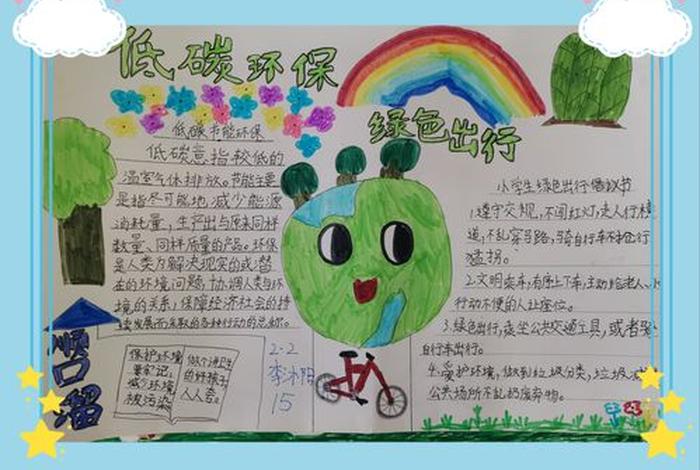 低碳环保
绿色出行
低碳节能环保
低碳意指较低的
温室气体排放。节能主要
是指尽可能地减少能源
消耗量，生产出与原来同样
数量、同样质量的产品。环保
是人类为解决现实的或潜
在的环境问题，协调人类与环
境的关系，保障经济社会的持
续发展而采取的各种行动的总称。
顺口溜
保护环境
要牢记，
减少环境
被污染
做个讲卫生
的好孩子
人人夸。
2.2
李沐阳
15
小学生绿色出行倡议书
1.遵守交规，不闯红灯，走人行横
道，不乱穿马路，骑自行车不
猛拐。
2.文明乘车，有序上下车，主动给老人、
行动不便的人让座位。
3.绿色出行，乘坐公共交通工具，或者骑
自行车出行。
4.爱护环境，做到垃圾分类，垃圾
公共场所不乱扔废弃物。